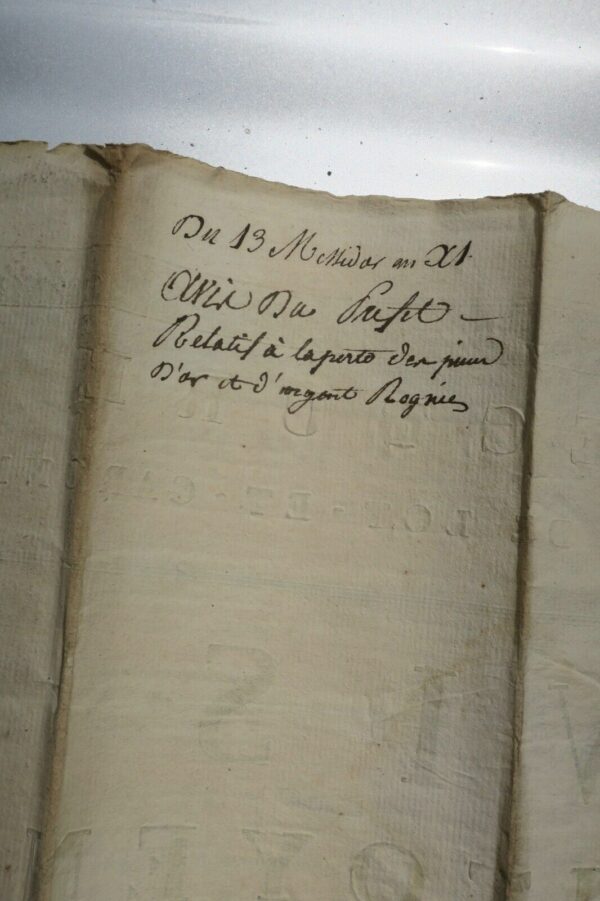 Du 13 Messidor an XI.
Avis Du Prefet –
Relatif à la perte des pieces
D'or et d'argent Rognées
LOT-ET-GAR